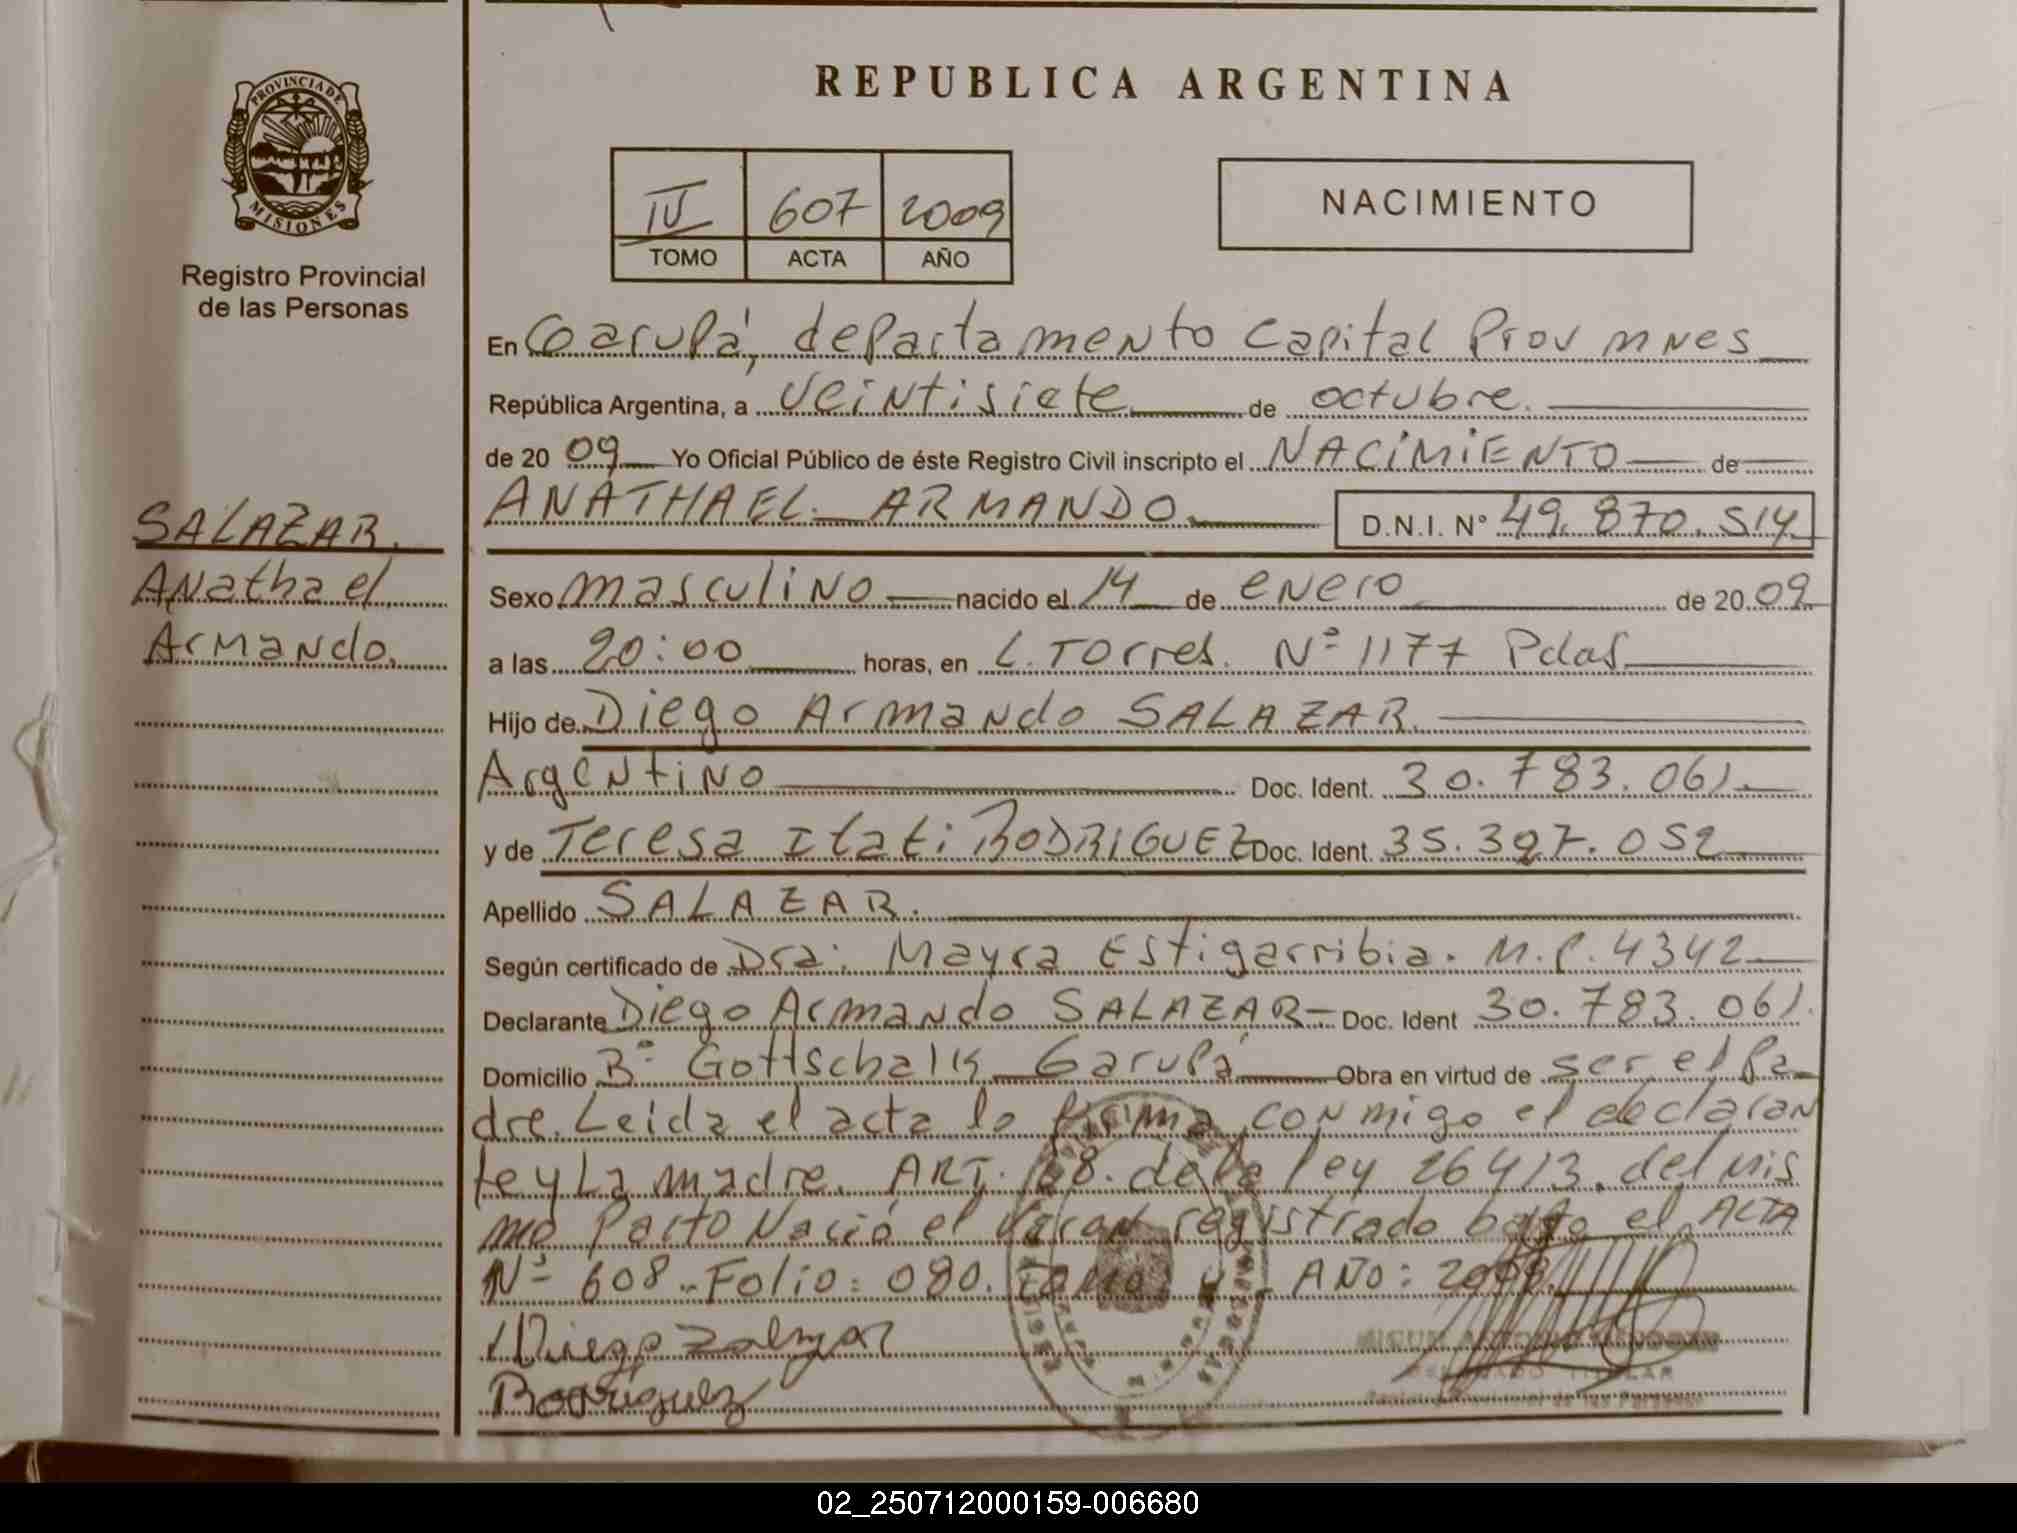 PROVINCIA DE
MISIONES
Registro Provincial
de las Personas
SALAZAR.
Anathael
Armando.
REPUBLICA ARGENTINA
IV 607 2009
TOMO ACTA AÑO
NACIMIENTO
En Garupá, departamento Capital Prov mnes
República Argentina, a veintisiete de octubre.
de 20 09 Yo Oficial Público de éste Registro Civil inscripto el NACIMIENTO de
ANATHAEL ARMANDO D.N.I. N° 49.870.514
Sexo masculino nacido el 14 de enero de 20 09
a las 20:00 horas, en L. Torres. Nº 1177 Pdas
Hijo de Diego Armando SALAZAR.
Argentino Doc. Ident. 30.783.061.
y de Teresa Itati RODRIGUEZ Doc. Ident. 35.327.052
Apellido SALAZAR.
Según certificado de Dra. Mayra Estigarribia. M.P. 4342
Declarante Diego Armando SALAZAR - Doc. Ident 30.783.061.
Domicilio Bº Gottschalk Garupá Obra en virtud de ser el Pa-
dre. Leida el acta lo firma conmigo el declaran
te y La madre. ART. de la ley 26413. del mis
mo Parto Nació el Varon registrado bajo el ACTA
Nº 608.. Folio: 080. Tomo: AÑO: 2009.
Diego Zalazar
Rodriguez